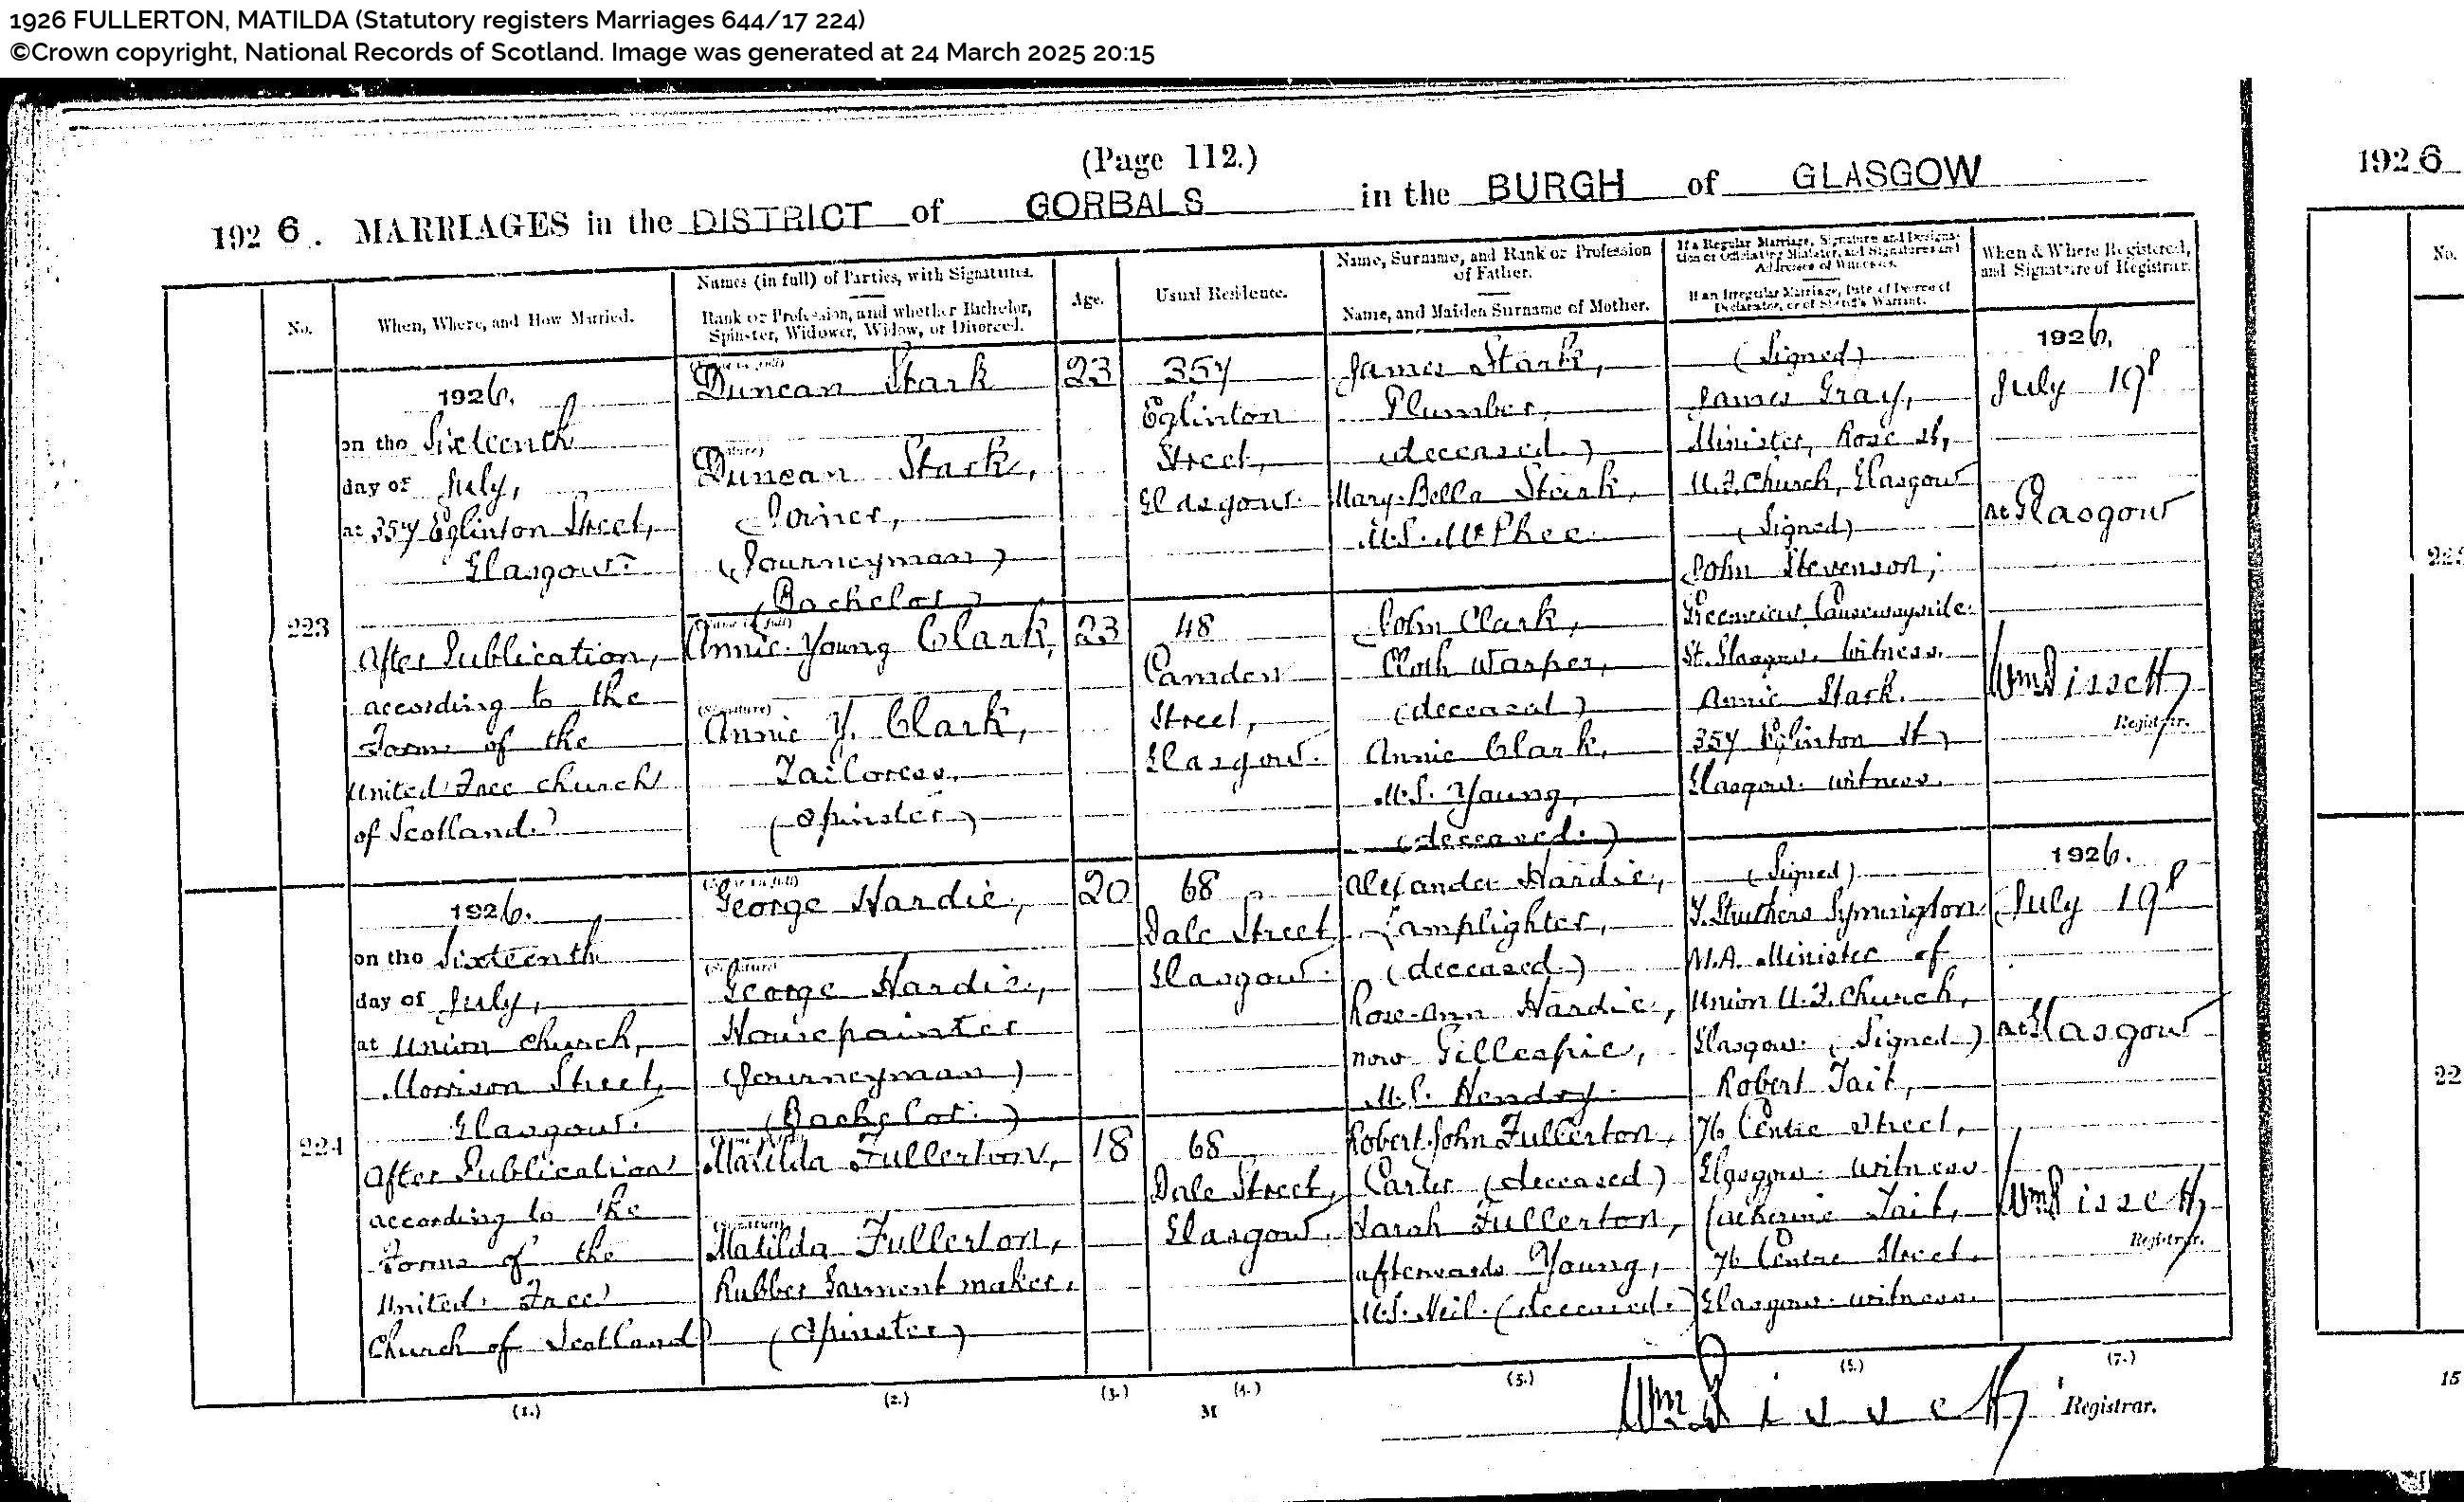 1926 FULLERTON, MATILDA (Statutory registers Marriages 644/17 224)
©Crown copyright, National Records of Scotland. Image was generated at 24 March 2025 20:15
(Page 112.)
1926. MARRIAGES in the DISTRICT of GORBALS in the BURGH of GLASGOW
1926
No.
When, Where, and How Married.
Names (in full) of Parties, with Signatures.
Rank or Profession, and whether Bachelor,
Spinster, Widower, Widow, or Divorced.
Age.
Usual Residence.
Name, Surname, and Rank or Profession
of Father.
Name, and Maiden Surname of Mother.
If a Regular Marriage, Signature and Designa-
tion of Officiating Minister, and Signatures and
Addresses of Witnesses.
If an Irregular Marriage, Date of Decree of
Declarator, or of Sheriff's Warrant.
When & Where Registered,
and Signature of Registrar.
No.
223
1926.
on the Sixteenth
day of July,
at 357 Eglinton Street,
Glasgow.
After Publication,
according to the
Forms of the
United Free Church
of Scotland.
(Name in full)
Duncan Stark
(Signature)
Duncan Stark,
Joiner,
(Journeyman)
(Bachelor)
23
357
Eglinton
Street,
Glasgow.
James Stark,
Plumber,
(deceased)
Mary-Bella Stark,
M.S. McPhee.
(Name in full)
Annie Young Clark,
(Signature)
Annie Y. Clark,
Tailoress,
(Spinster)
23
48
Camden
Street,
Glasgow.
John Clark,
Cloth Warper,
(deceased)
Annie Clark,
M.S. Young,
(deceased.)
(Signed)
James Gray,
Minister, Rose St,
U.F. Church, Glasgow
(Signed)
John Stevenson,
Causewayside
St. Glasgow. Witness.
Annie Stark.
357 Eglinton St,
Glasgow. witness.
1926,
July 19th
at Glasgow
Wm Bissett
Registrar.
224
1926.
on the Sixteenth
day of July,
at Union Church,
Morrison Street,
Glasgow.
After Publication
according to the
Forms of the
United Free
Church of Scotland
(Name in full)
George Hardie,
(Signature)
George Hardie,
Housepainter
(Journeyman)
(Bachelor.)
20
68
Dale Street
Glasgow.
Alexander Hardie,
Lamplighter,
(deceased)
Rose-Ann Hardie,
now Gillespie,
M.S. Hendry.
Matilda Fullerton,
(Signature)
Matilda Fullerton,
Rubber Garment maker.
(Spinster)
18
68
Dale Street,
Glasgow.
Robert John Fullerton,
Carter (deceased)
Sarah Fullerton,
afterwards Young,
M.S. Neil. (deceased.)
(Signed)
T. Struthers Symington
M.A. Minister of
Union U.F. Church,
Glasgow. (Signed)
Robert Tait,
76 Centre Street,
Glasgow. witness
Catherine Tait,
76 Centre Street.
Glasgow. witness.
1926.
July 19th
at Glasgow
Wm Bissett
Registrar.
(1.)
(2.)
(3.)
(4.)
(5.)
(6.)
(7.)
Wm Bissett Registrar.
15